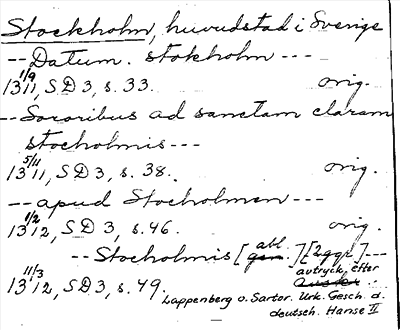 Stockholm, huvudstad i Sverige
-- Datum. stokholm ---
13 1/9 11, SD 3, s. 33. orig.
-- Sororibus ad sanctam claram
stocholmis ---
13 5/11 11, SD 3, s. 38. orig.
-- apud Stocholmen ---
13 1/2 12, SD 3, s. 46. orig.
-- Stocholmis [gen. abl.] [2 ggr] ---
13 11/3 12, SD 3, s. 49. avtryck efter
Lappenberg o. Sartor. Urk. Gesch. d.
deutsch. Hanse II